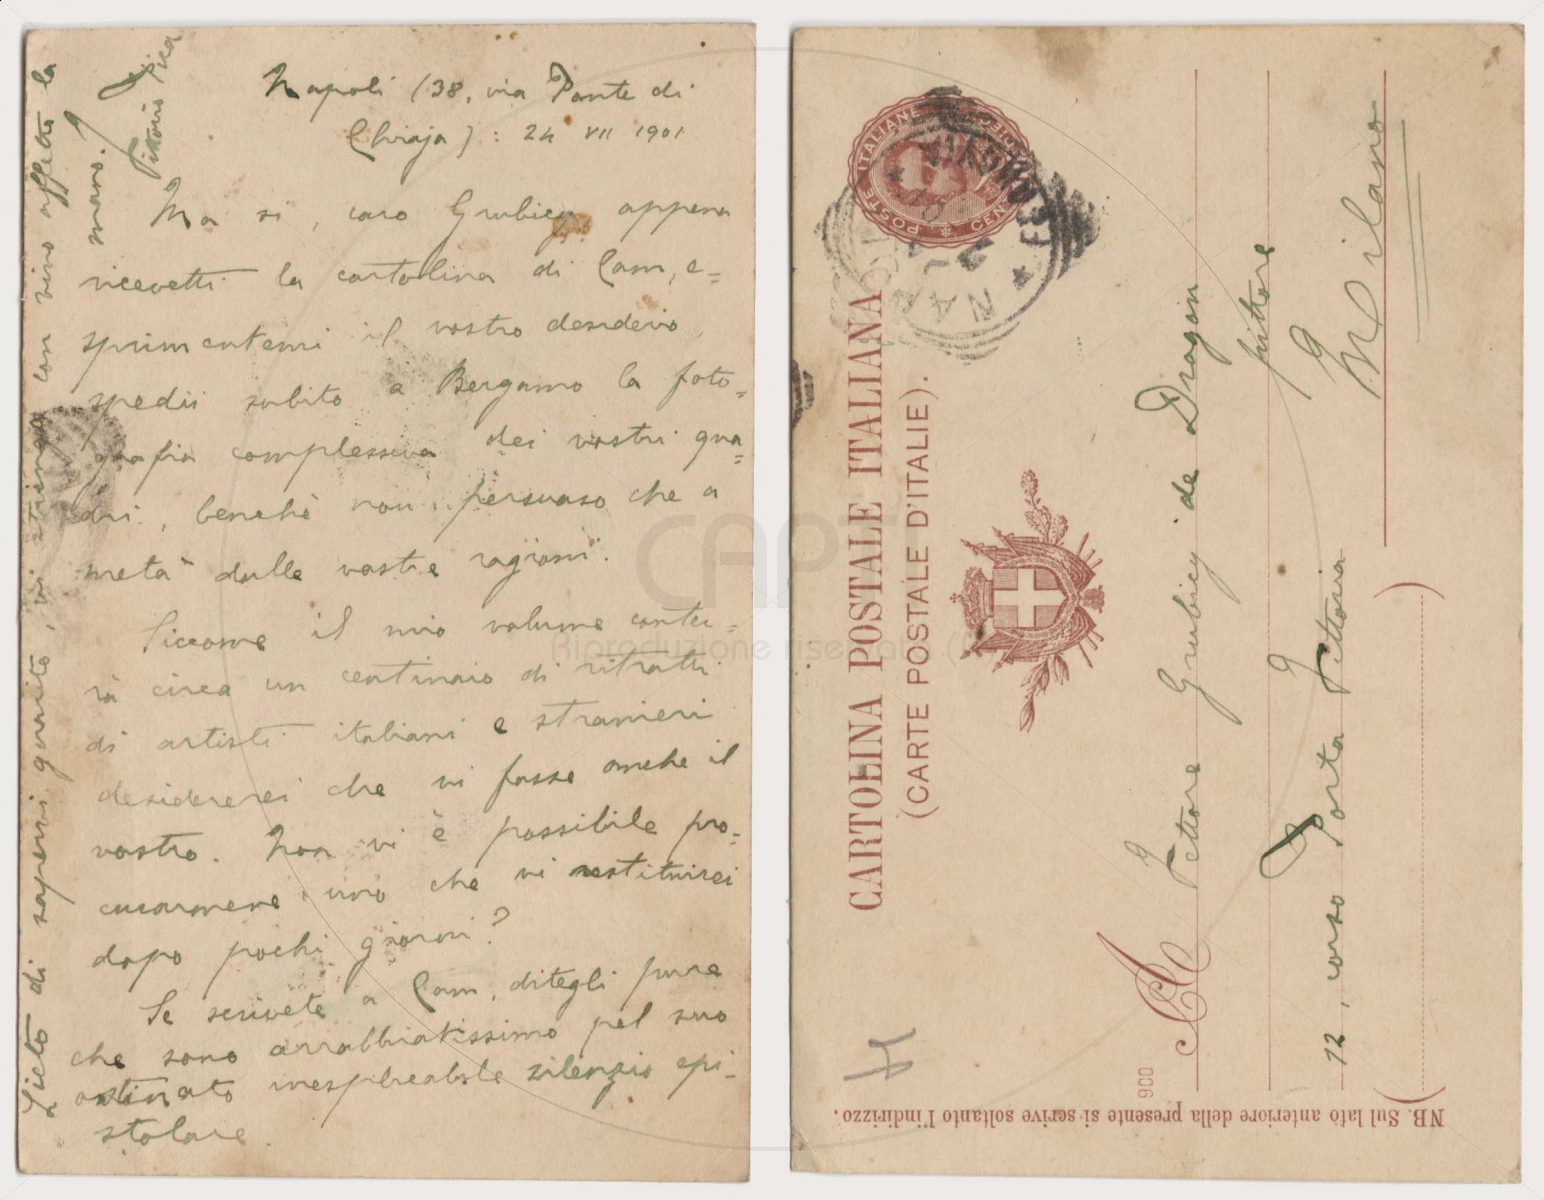 Napoli (38, via Ponte di
Chiaja): 24 VII 1901
Ma si, caro Grubicy appena
ricevetti la cartolina di Cam, e=
sprimentemi il vostro desiderio,
spedii subito a Bergamo la foto=
grafia complessiva dei vostri qua=
dri, benchè non persuaso che a
metà dalle vostre ragioni.
Siccome il mio volume conter=
rà circa un centinaio di ritratti
di artisti italiani e stranieri
desidererei che vi fosse anche il
vostro. Non vi è possibile pro=
curarmene uno che vi restituirei
dopo pochi giorni?
Se scrivete a Cam, ditegli pure
che sono arrabbiatissimo pel suo
ostinato inesplicabile silenzio epi=
stolare.
Lieto di sapervi guarito, vi stringo con vivo affetto la
mano.
Vittorio Pica
CARTOLINA POSTALE ITALIANA
(CARTE POSTALE D'ITALIE).
POSTE ITALIANE
CENT
NAPOLI
FERROVIA
A
Vettore Grubicy de Dragon
pittore
12, corso Porta Vittoria
Milano
900
NB. Sul lato anteriore della presente si scrive soltanto l'indirizzo.
Riproduzione riservata